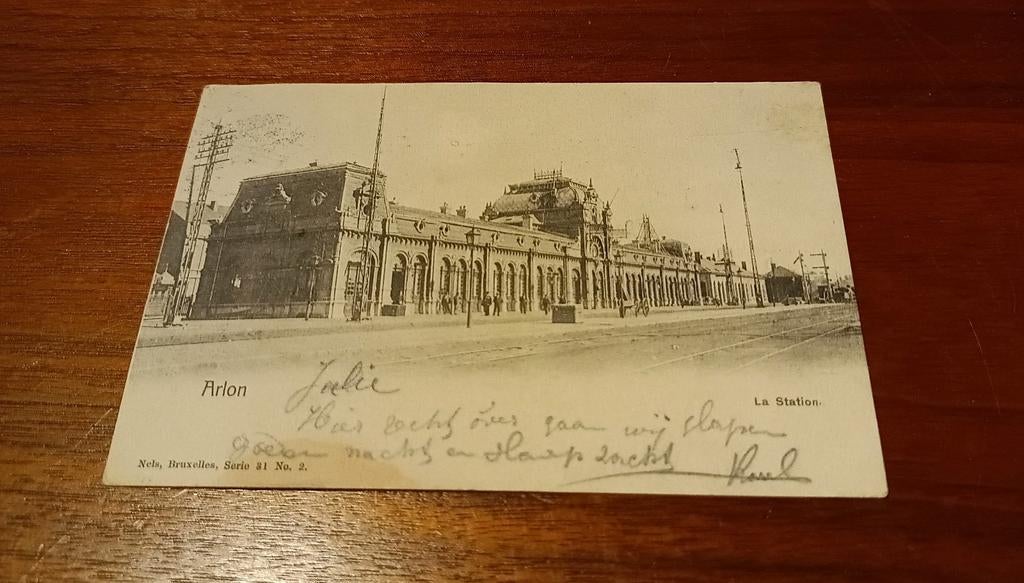 Arlon
La Station.
Julie
Hier recht over gaan wij slapen
Goeden nacht en slaap zacht Karel
Nels, Bruxelles, Serie 31 No. 2.